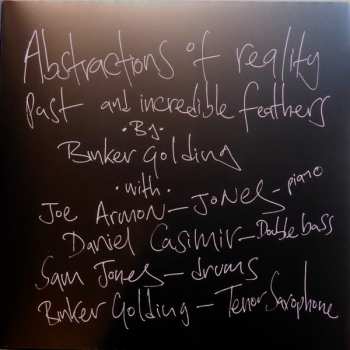 Abstractions of reality
past and incredible feathers
• By •
Binker Golding
• with •
Joe Armon – Jones – piano
Daniel Casimir – Double bass
Sam Jones – drums
Binker Golding – Tenor Saxophone